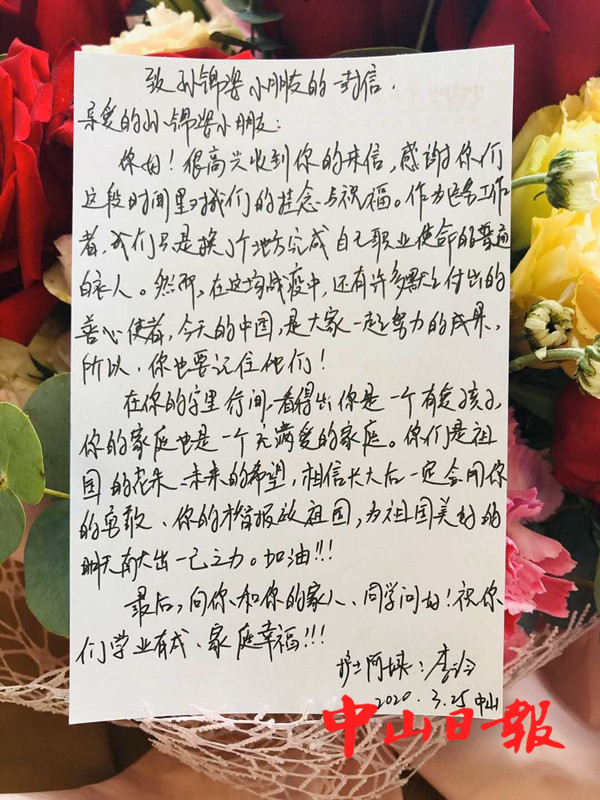 致孙锦梁小朋友的一封信.
亲爱的孙锦梁小朋友:
你好！很高兴收到你的来信，感谢你们
这段时间里对我们的挂念与祝福。作为医务工作
者，我们只是换了个地方完成自己职业使命的普通
白衣人。然而，在这场战疫中，还有许多默默付出的
善心使者，今天的中国，是大家一起努力的成果，
所以，你也要记住他们！
在你的字里行间，看得出你是一个有爱孩子，
你的家庭也是一个充满爱的家庭。你们是祖
国的花朵、未来的希望，相信长大后一定会用你
的勇敢、你的才智报效祖国，为祖国美好的
明天献出一己之力。加油!!!
最后，向你、和你的家人、同学问好！祝你
们学业有成、家庭幸福!!!
护士阿姨：李
2020.3.25 中山
中山日報